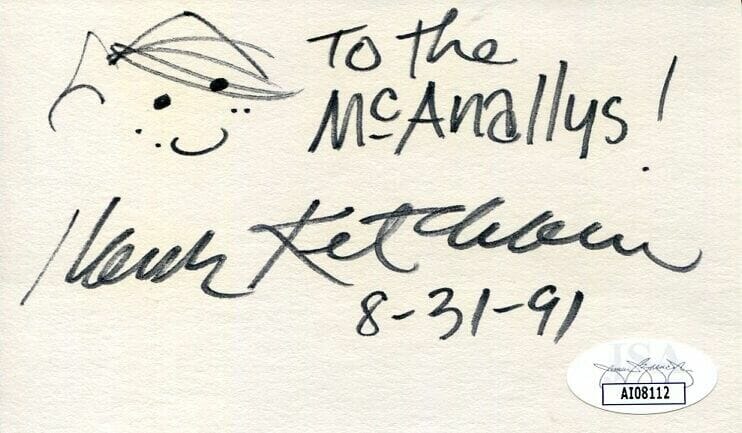 To the
McAnallys!
Hank Ketcham
8-31-91
JSA
AI08112